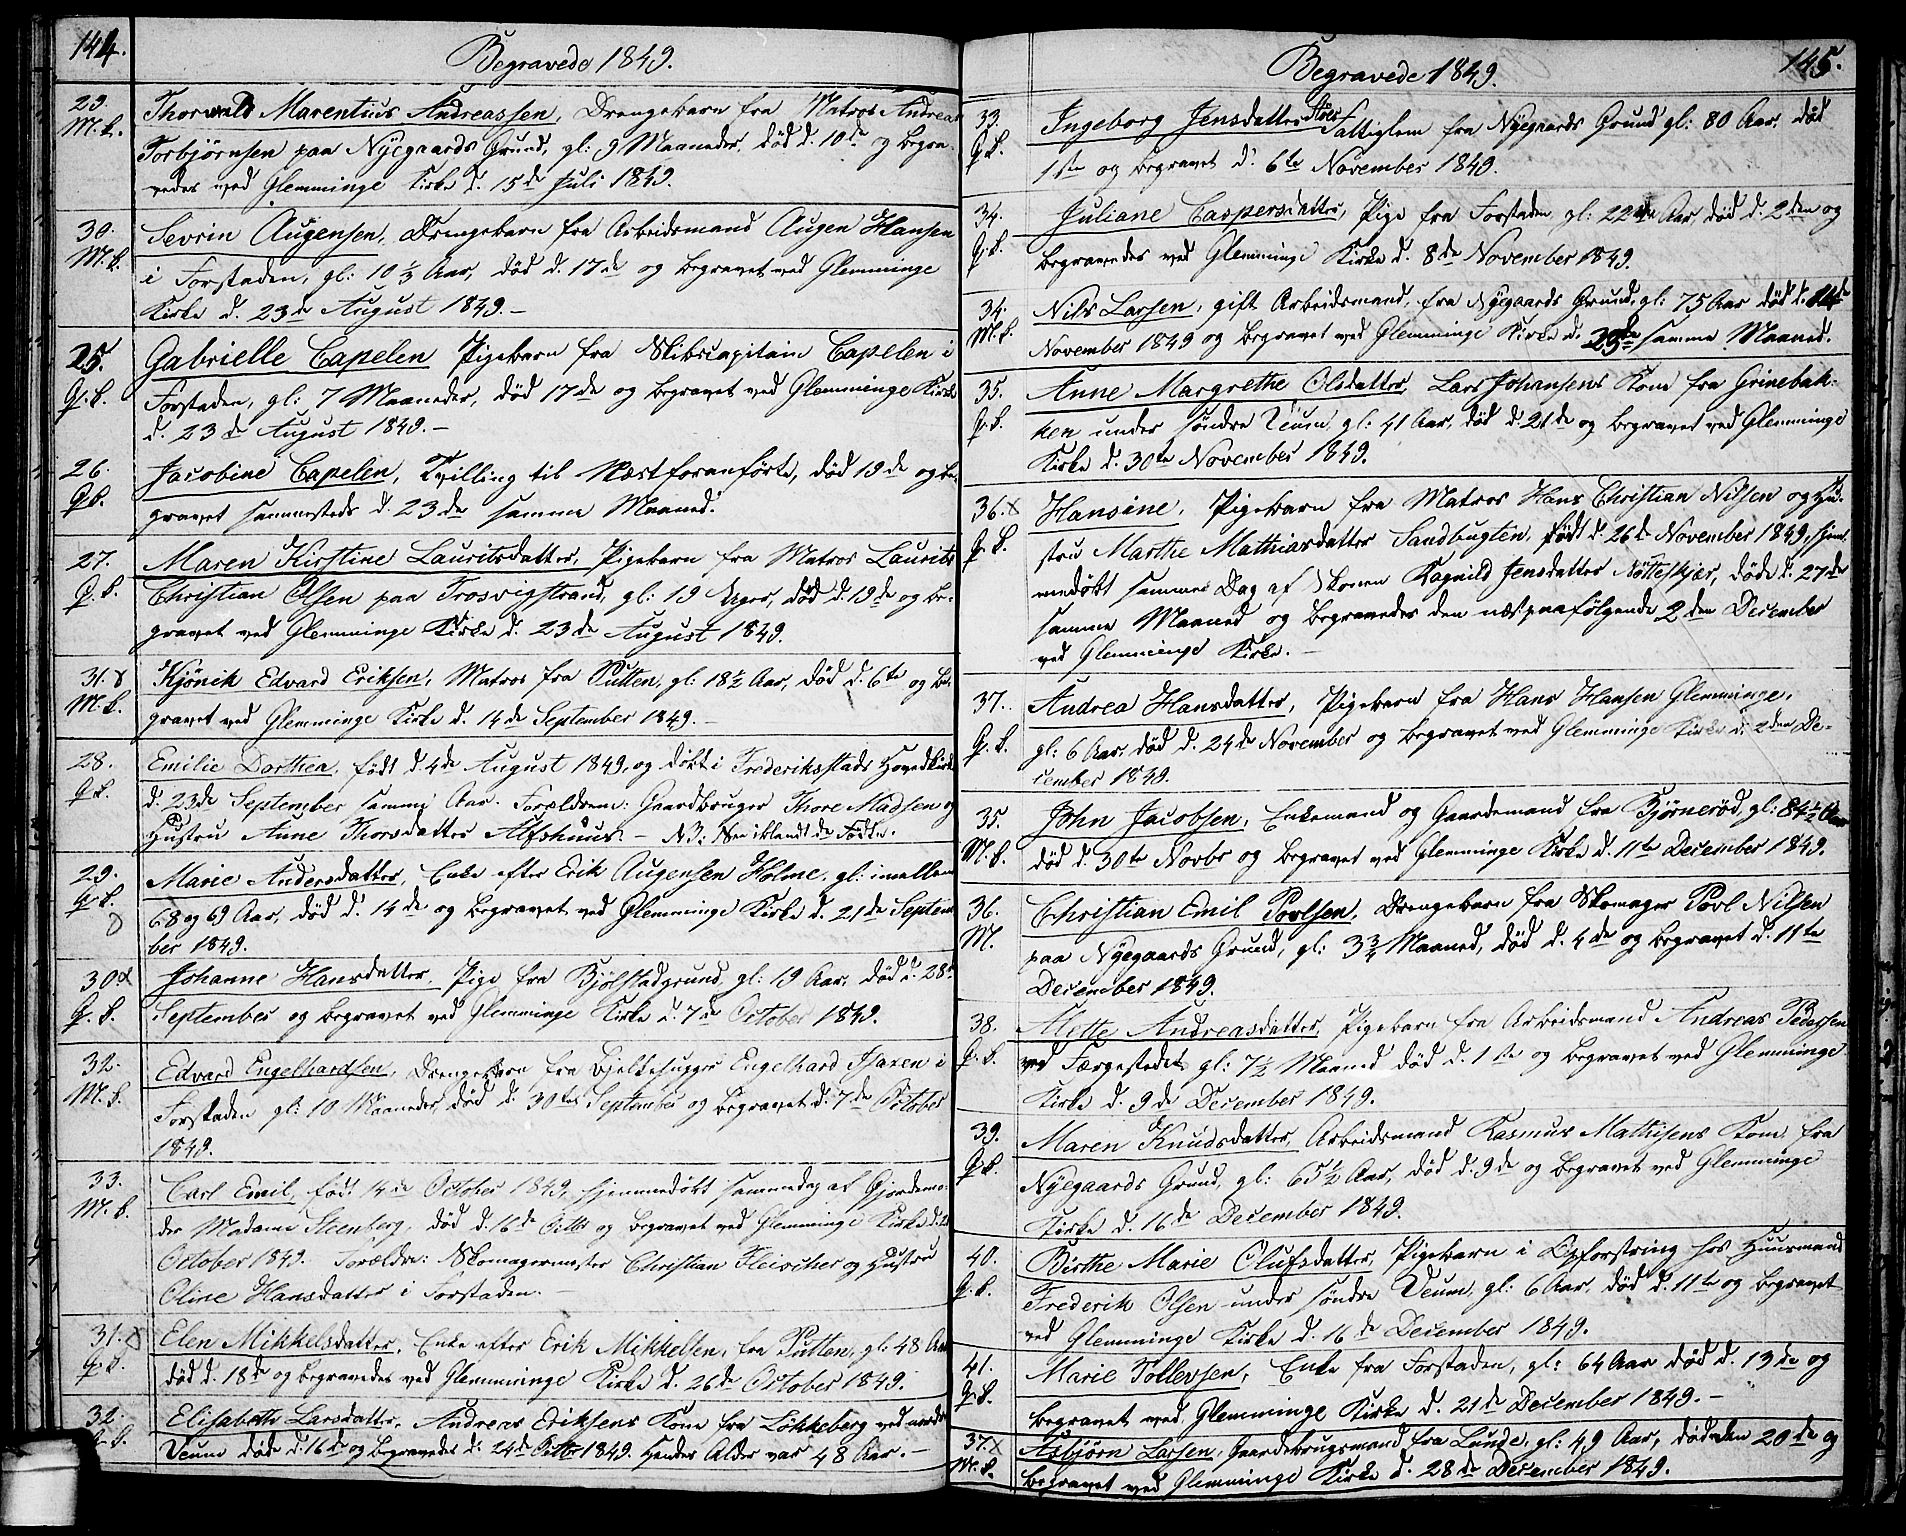 144.
Begravede 1849.
29. Thorvald Marentius Andreassen, Drengebarn fra Matros Andreas
M.k. Torbjørnsen paa Nyegaards Grund, gl: 9 Maaneder, død d. 10de og begra-
vedes ved Glemminge Kirke d. 15de Juli 1849.
30. Sevrin Augensen, Drengebarn fra Arbeidsmand Augen Hansen
M.k. i Forstaden, gl: 10½ Aar, død d. 17de og begravet ved Glemminge
Kirke d. 23de August 1849.-
25. Gabrielle Capelen Pigebarn fra Skibscapitain Capelen i
Q.k. Forstaden, gl: 7 Maaneder, død 17de og begravet ved Glemminge Kirke
d. 23de August 1849.-
26. Jacobine Capelen, Tvilling til Næstforanførte, død 19de og be-
Q.k. gravet sammesteds d. 23de samme Maaned.
27. Maren Kirstine Lauritsdatter, Pigebarn fra Matros Laurits
Q.k. Christian Olsen paa Trosvigstrand, gl: 19 Uger, død d. 19de og be-
gravet ved Glemminge Kirke d. 23de August 1849.
31. Kjønik Edvard Eriksen, Matros fra Putten, gl: 18½ Aar, død d. 6te og be-
M.k. gravet ved Glemminge Kirke d. 14de September 1849.-
28. Emilie Dorthea, født d. 4de August 1849, og døbt i Frederiksstads Hovedkirke
Q.k. d. 23de September samme Aar. Forældrene: Gaardbruger Thore Madsen og
Hustru Anne Thorsdatter Alfshuus.- N3: iblandt de Fødte.
29. Marie Andersdatter, Enke efter Erik Augensen Holme, gl: imellem
Q.k. 68 og 69 Aar, død d. 14de og begravet ved Glemminge Kirke d. 21de Septem
ber 1849.
30 Johanne Hansdatter, Pige fra Bjølstadgrund, gl: 19 Aar, død d. 28de
Q.k. September og begravet ved Glemminge Kirke d. 7de October 1849.
32. Edvard Engelhardsen, Drengebarn fra Bjelkehugger Engelhard Isaxen i
M.k. Forstaden gl: 10 Maaneder, død d. 30te September og begravet d. 7de October
1849.
33. Carl Emil, født 14de October 1849, hjemmedøbt sammedag af Gjordemo-
M.k. der Madame Steenberg, død d. 16de Octbr og begravet ved Glemminge Kirke d.
October 1849. Forældre: Skomagermester Christian Fleischer og Hustru
Oline Hansdatter i Forstaden.-
31. Elen Mikkelsdatter, Enke efter Erik Mikkelsen, fra Putten, gl: 48 Aar
Q.k. død d. 18de og begravedes ved Glemminge Kirke d. 26de October 1849.
32. Elisabeth Larsdatter, Andreas Eriksens Kone fra Løkkeberg ved nordre
Q.k. Veum døde d. 16de og begravedes d. 24de Octbr 1849. Hendes Alder var 48 Aar.-
145.
Begravede 1849.
33. Ingeborg Jensdatter Fattiglem fra Nyegaards Grund gl: 80 Aar, død
Q.k. 1ste og begravet d. 6te November 1849.
34. Juliane Caspersdatter, Pige fra Forstaden, gl: 22 Aar, død d. 2den og
Q.k. begravedes ved Glemminge Kirke d. 8de November 1849.
34. Nils Larsen, gift Arbeidsmand, fra Nyegaards Grund, gl: 75 Aar død d. 14de
M.k. November 1849 og begravet ved Glemminge Kirke d. 23de samme Maaned.
35. Anne Margrethe Olsdatter, Lars Johansens Kone fra Grinebak-
Q.k. ken under søndre Veum, gl: 41 Aar, død d. 21de og begravet ved Glemminge
Kirke d. 30te November 1849.
36. Hansine, Pigebarn fra Matros Hans Christian Nilsen og Hu-
Q.k. stru Marthe Mathiasdatter Sandbugten, født d. 26de November 1849, hjem-
medøbt samme Dag af Konen Ragnild Jensdatter Nøtteskjær, døde d. 27de
samme Maaned og begravedes den næstpaafølgende 2den December
ved Glemminge Kirke.-
37. Andrea Hansdatter, Pigebarn fra Hans Hansen Glemminge,
Q.k. gl: 6 Aar, død d. 24de November og begravet ved Glemminge Kirke d. 2den De-
cember 1849.
35. John Jacobsen, Enkemand og Gaardmand fra Bjørnerød, gl: 84½ Aar
M.k. død d. 30te Novbr og begravet ved Glemminge Kirke d. 11te December 1849.
36. Christian Emil Povlsen, Drengebarn fra Skomager Povl Nilsen
M. paa Nyegaards Grund, gl: 3¾ Maaned, død d. 4de og begravet d. 11te
December 1849.
38. Mette Andreasdatter, Pigebarn fra Arbeidsmand Andreas Pedersen
Q.k. ved Færgestedet gl: 7½ Maaned død d. 1ste og begravet ved Glemminge
Kirke d. 9de December 1849.
39. Maren Knudsdatter, Arbeidsmand Rasmus Mathisens Kone fra
Q.k. Nyegaards Grund, gl: 65½ Aar, død d. 9de og begravet ved Glemminge
Kirke d. 16de December 1849.
40. Birthe Marie Olufsdatter, Pigebarn i Opfostring hos Huusmand
Q.k. Frederik Olsen under søndre Veum, gl: 6 Aar, død d. 11te og begravet
ved Glemminge Kirke d. 16de December 1849.
41. Marie Tollevsen, Enke fra Forstaden, gl: 64 Aar død d. 13de og
Q.k. begravet ved Glemminge Kirke d. 21de December 1849.-
37. Asbjørn Larsen, Gaardbrugsmand fra Lunde, gl: 49 Aar, døde den 20de og
M.k. begravet ved Glemminge Kirke d. 28de December 1849.